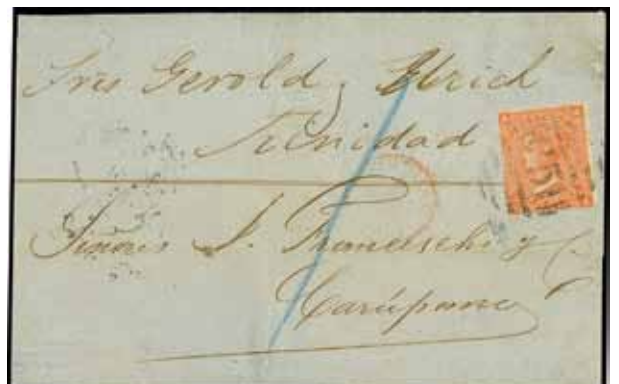 Sres Gerold y Urich
Trinidad
Señores J. Franceschi y C
Carúpano